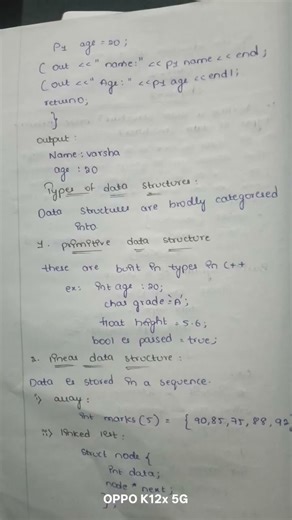 P1 age = 20;
Cout << "name:" << P1 name << end;
Cout << "Age:" << P1 age << endl;
return 0;
}
output:
Name: varsha
age: 20
Types of data structures:
Data structures are brodly categoriesed
into
1. primitive data structure
these are built in types in C++
ex: int age: 20;
char grade = 'A';
float height = 5.6;
bool is passed = true;
2. linear data structure:
Data is stored in a sequence.
i) array:
int marks(5) = {90,85,75,88,92
ii) linked list:
Struct node {
int data;
node * next;
};
OPPO K12x 5G